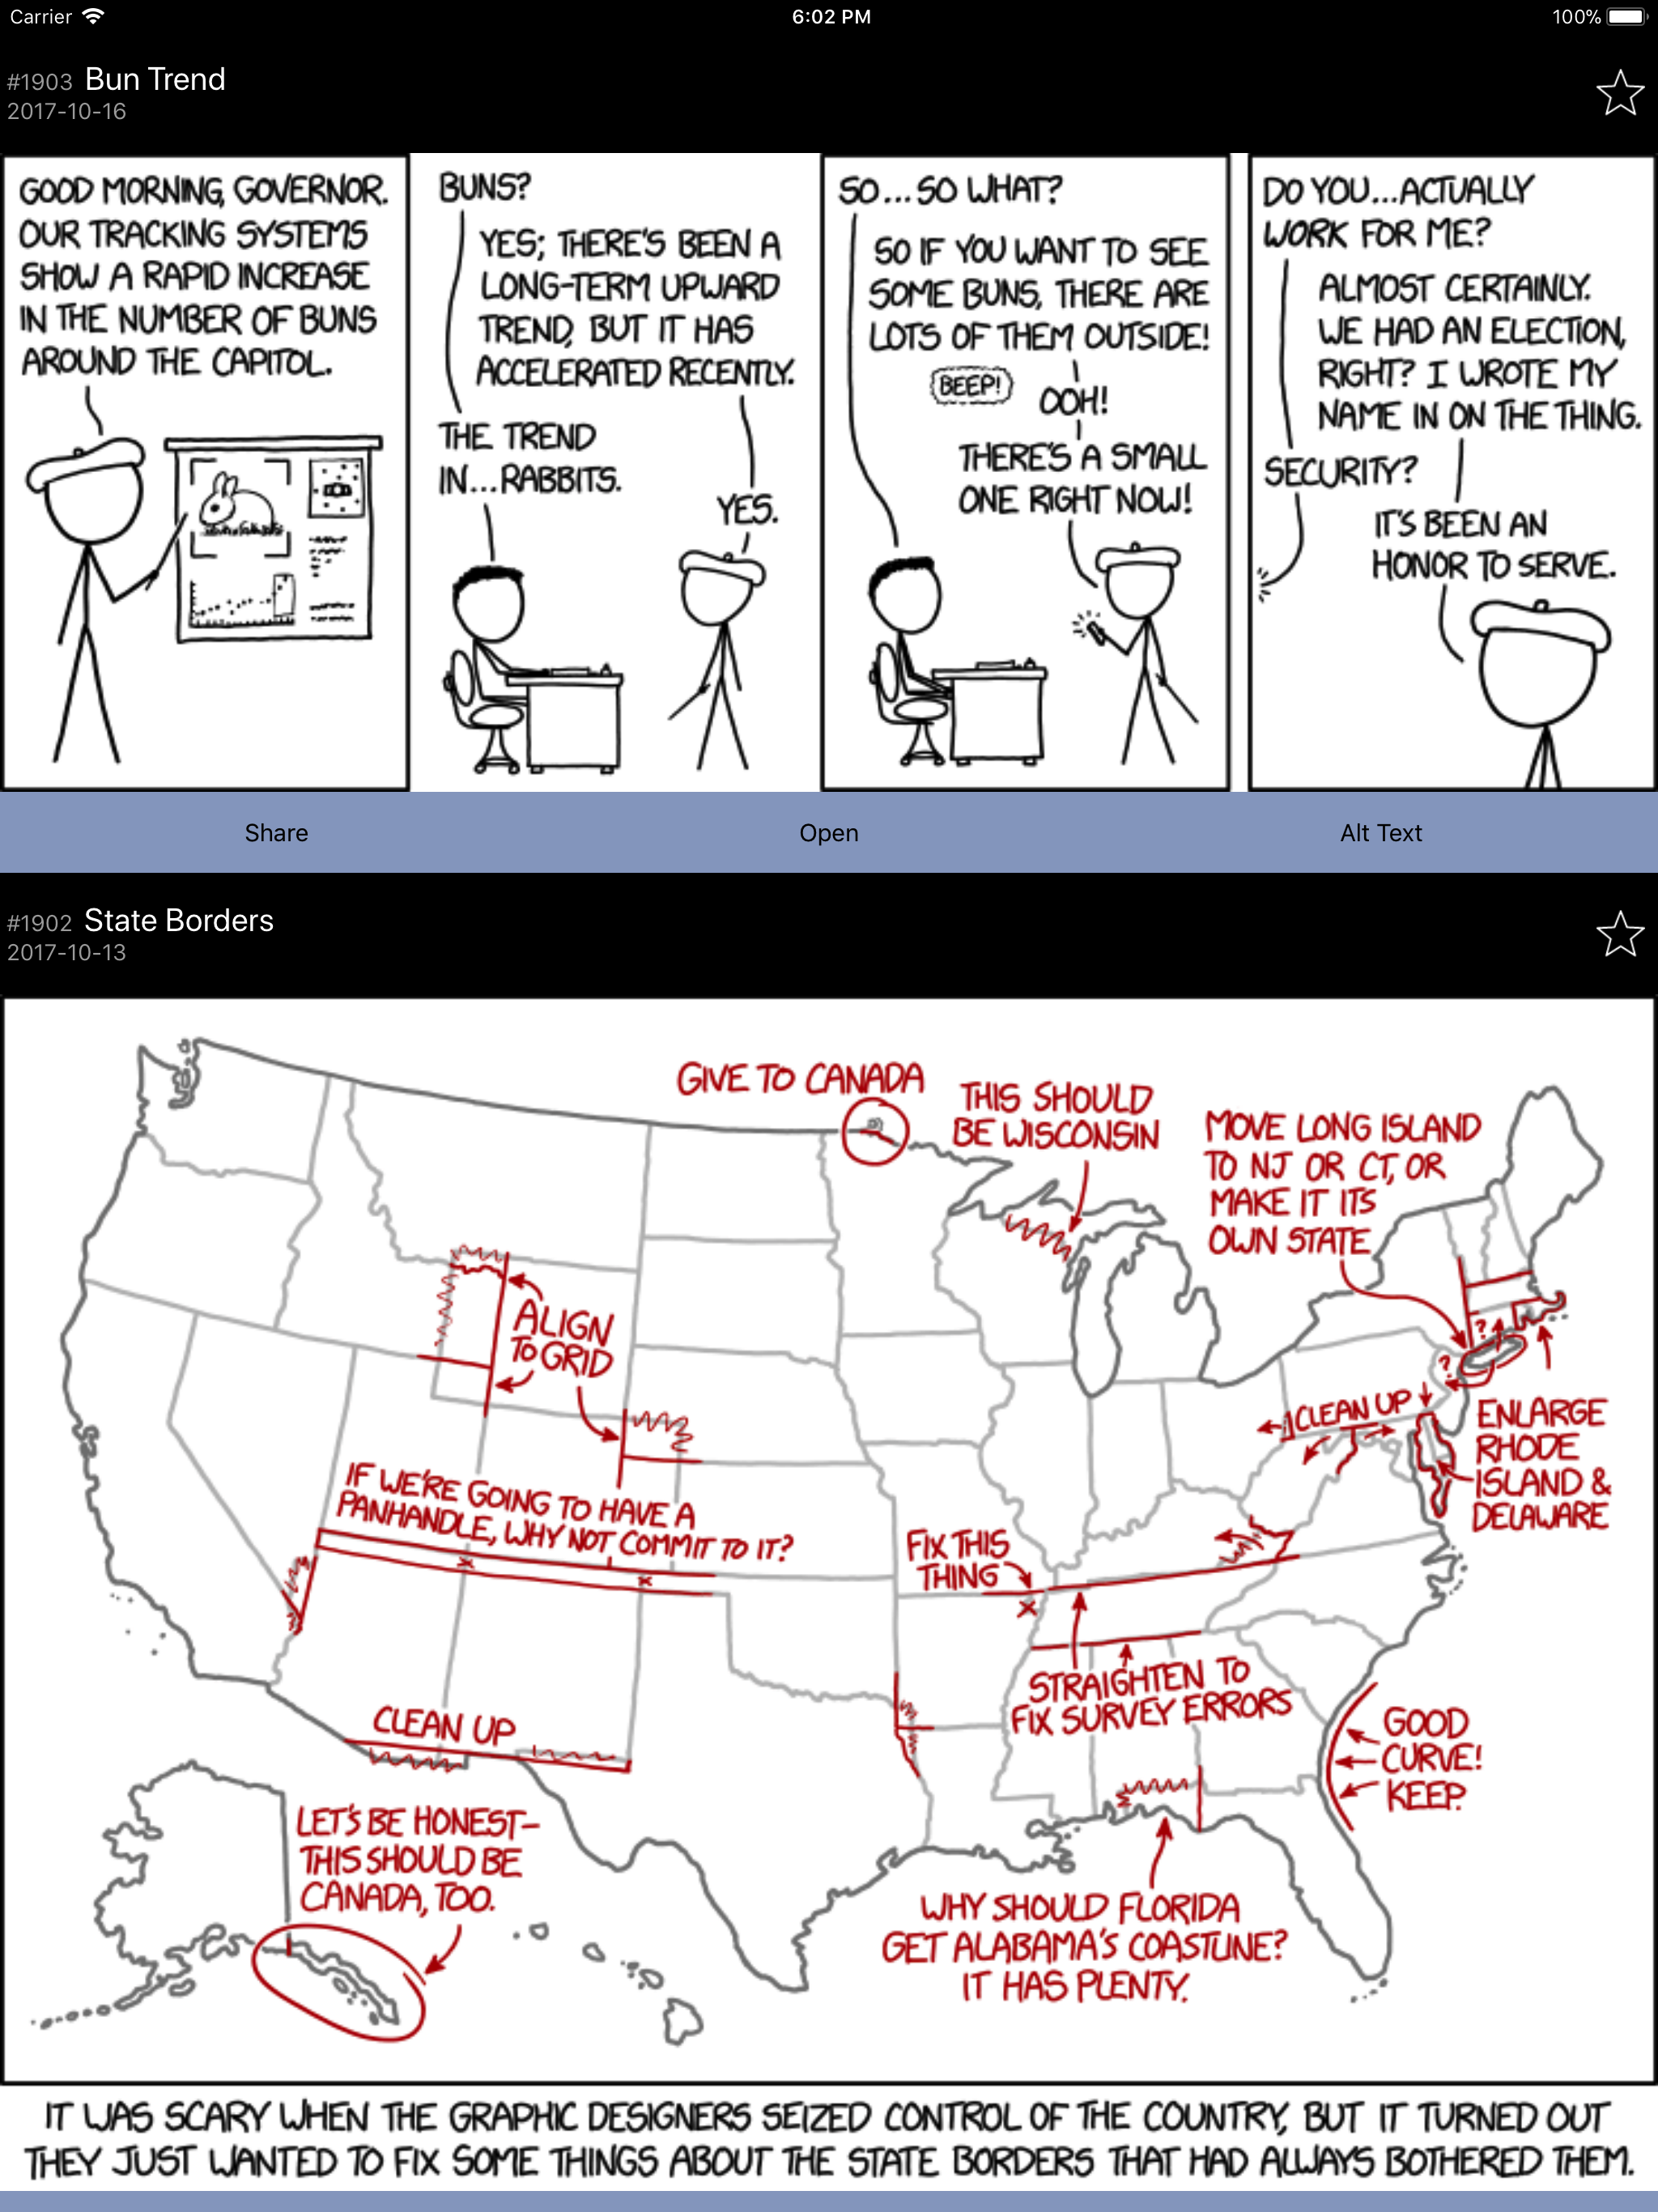 Carrier 6:02 PM 100%
#1903 Bun Trend
2017-10-16
GOOD MORNING, GOVERNOR.
OUR TRACKING SYSTEMS
SHOW A RAPID INCREASE
IN THE NUMBER OF BUNS
AROUND THE CAPITOL.
BUNS?
YES; THERE'S BEEN A
LONG-TERM UPWARD
TREND, BUT IT HAS
ACCELERATED RECENTLY.
THE TREND
IN...RABBITS.
YES.
SO...SO WHAT?
SO IF YOU WANT TO SEE
SOME BUNS, THERE ARE
LOTS OF THEM OUTSIDE!
BEEP!
OOH!
THERE'S A SMALL
ONE RIGHT NOW!
DO YOU...ACTUALLY
WORK FOR ME?
ALMOST CERTAINLY.
WE HAD AN ELECTION,
RIGHT? I WROTE MY
NAME IN ON THE THING.
SECURITY?
IT'S BEEN AN
HONOR TO SERVE.
Share Open Alt Text
#1902 State Borders
2017-10-13
GIVE TO CANADA
THIS SHOULD
BE WISCONSIN
MOVE LONG ISLAND
TO NJ OR CT, OR
MAKE IT ITS
OWN STATE
ALIGN
TO GRID
?
?
CLEAN UP
ENLARGE
RHODE
ISLAND &
DELAWARE
IF WE'RE GOING TO HAVE A
PANHANDLE, WHY NOT COMMIT TO IT?
FIX THIS
THING
STRAIGHTEN TO
FIX SURVEY ERRORS
CLEAN UP
GOOD
CURVE!
KEEP.
LET'S BE HONEST—
THIS SHOULD BE
CANADA, TOO.
WHY SHOULD FLORIDA
GET ALABAMA'S COASTLINE?
IT HAS PLENTY.
IT WAS SCARY WHEN THE GRAPHIC DESIGNERS SEIZED CONTROL OF THE COUNTRY, BUT IT TURNED OUT
THEY JUST WANTED TO FIX SOME THINGS ABOUT THE STATE BORDERS THAT HAD ALWAYS BOTHERED THEM.